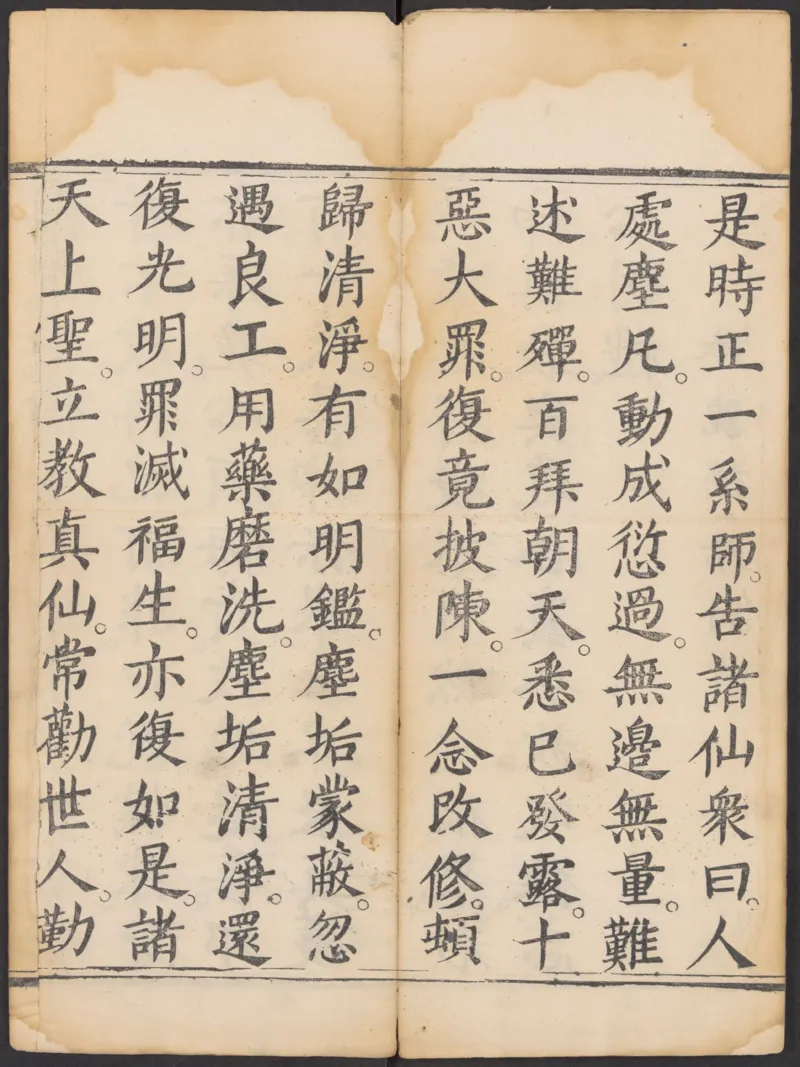 是時正一系師。告諸仙衆曰。人
處塵凡。動成愆過。無邊無量。難
述難殫。百拜朝天。悉已發露。十
惡大罪。復竟披陳。一念改修。頓
歸清淨。有如明鑑。塵垢蒙蔽。忽
遇良工。用藥磨洗。塵垢清淨。還
復光明。罪滅福生。亦復如是。諸
天上聖。立教真仙。常勸世人。勤